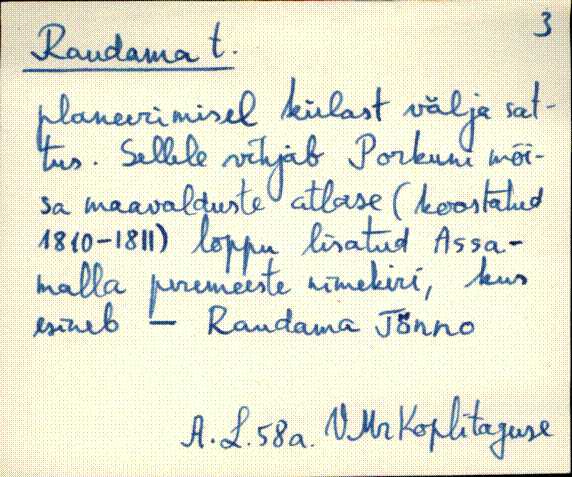 3
Raudama t.
planeerimisel külast välja sat-
tus. Sellele vihjab Porkuni mõi-
sa maavalduste atlase (koostatud
1810-1811) lõppu lisatud Assa-
malla peremeeste nimekiri, kus
esineb — Raudama Tõnno
A. L. 58a. VMr Koplitaguse